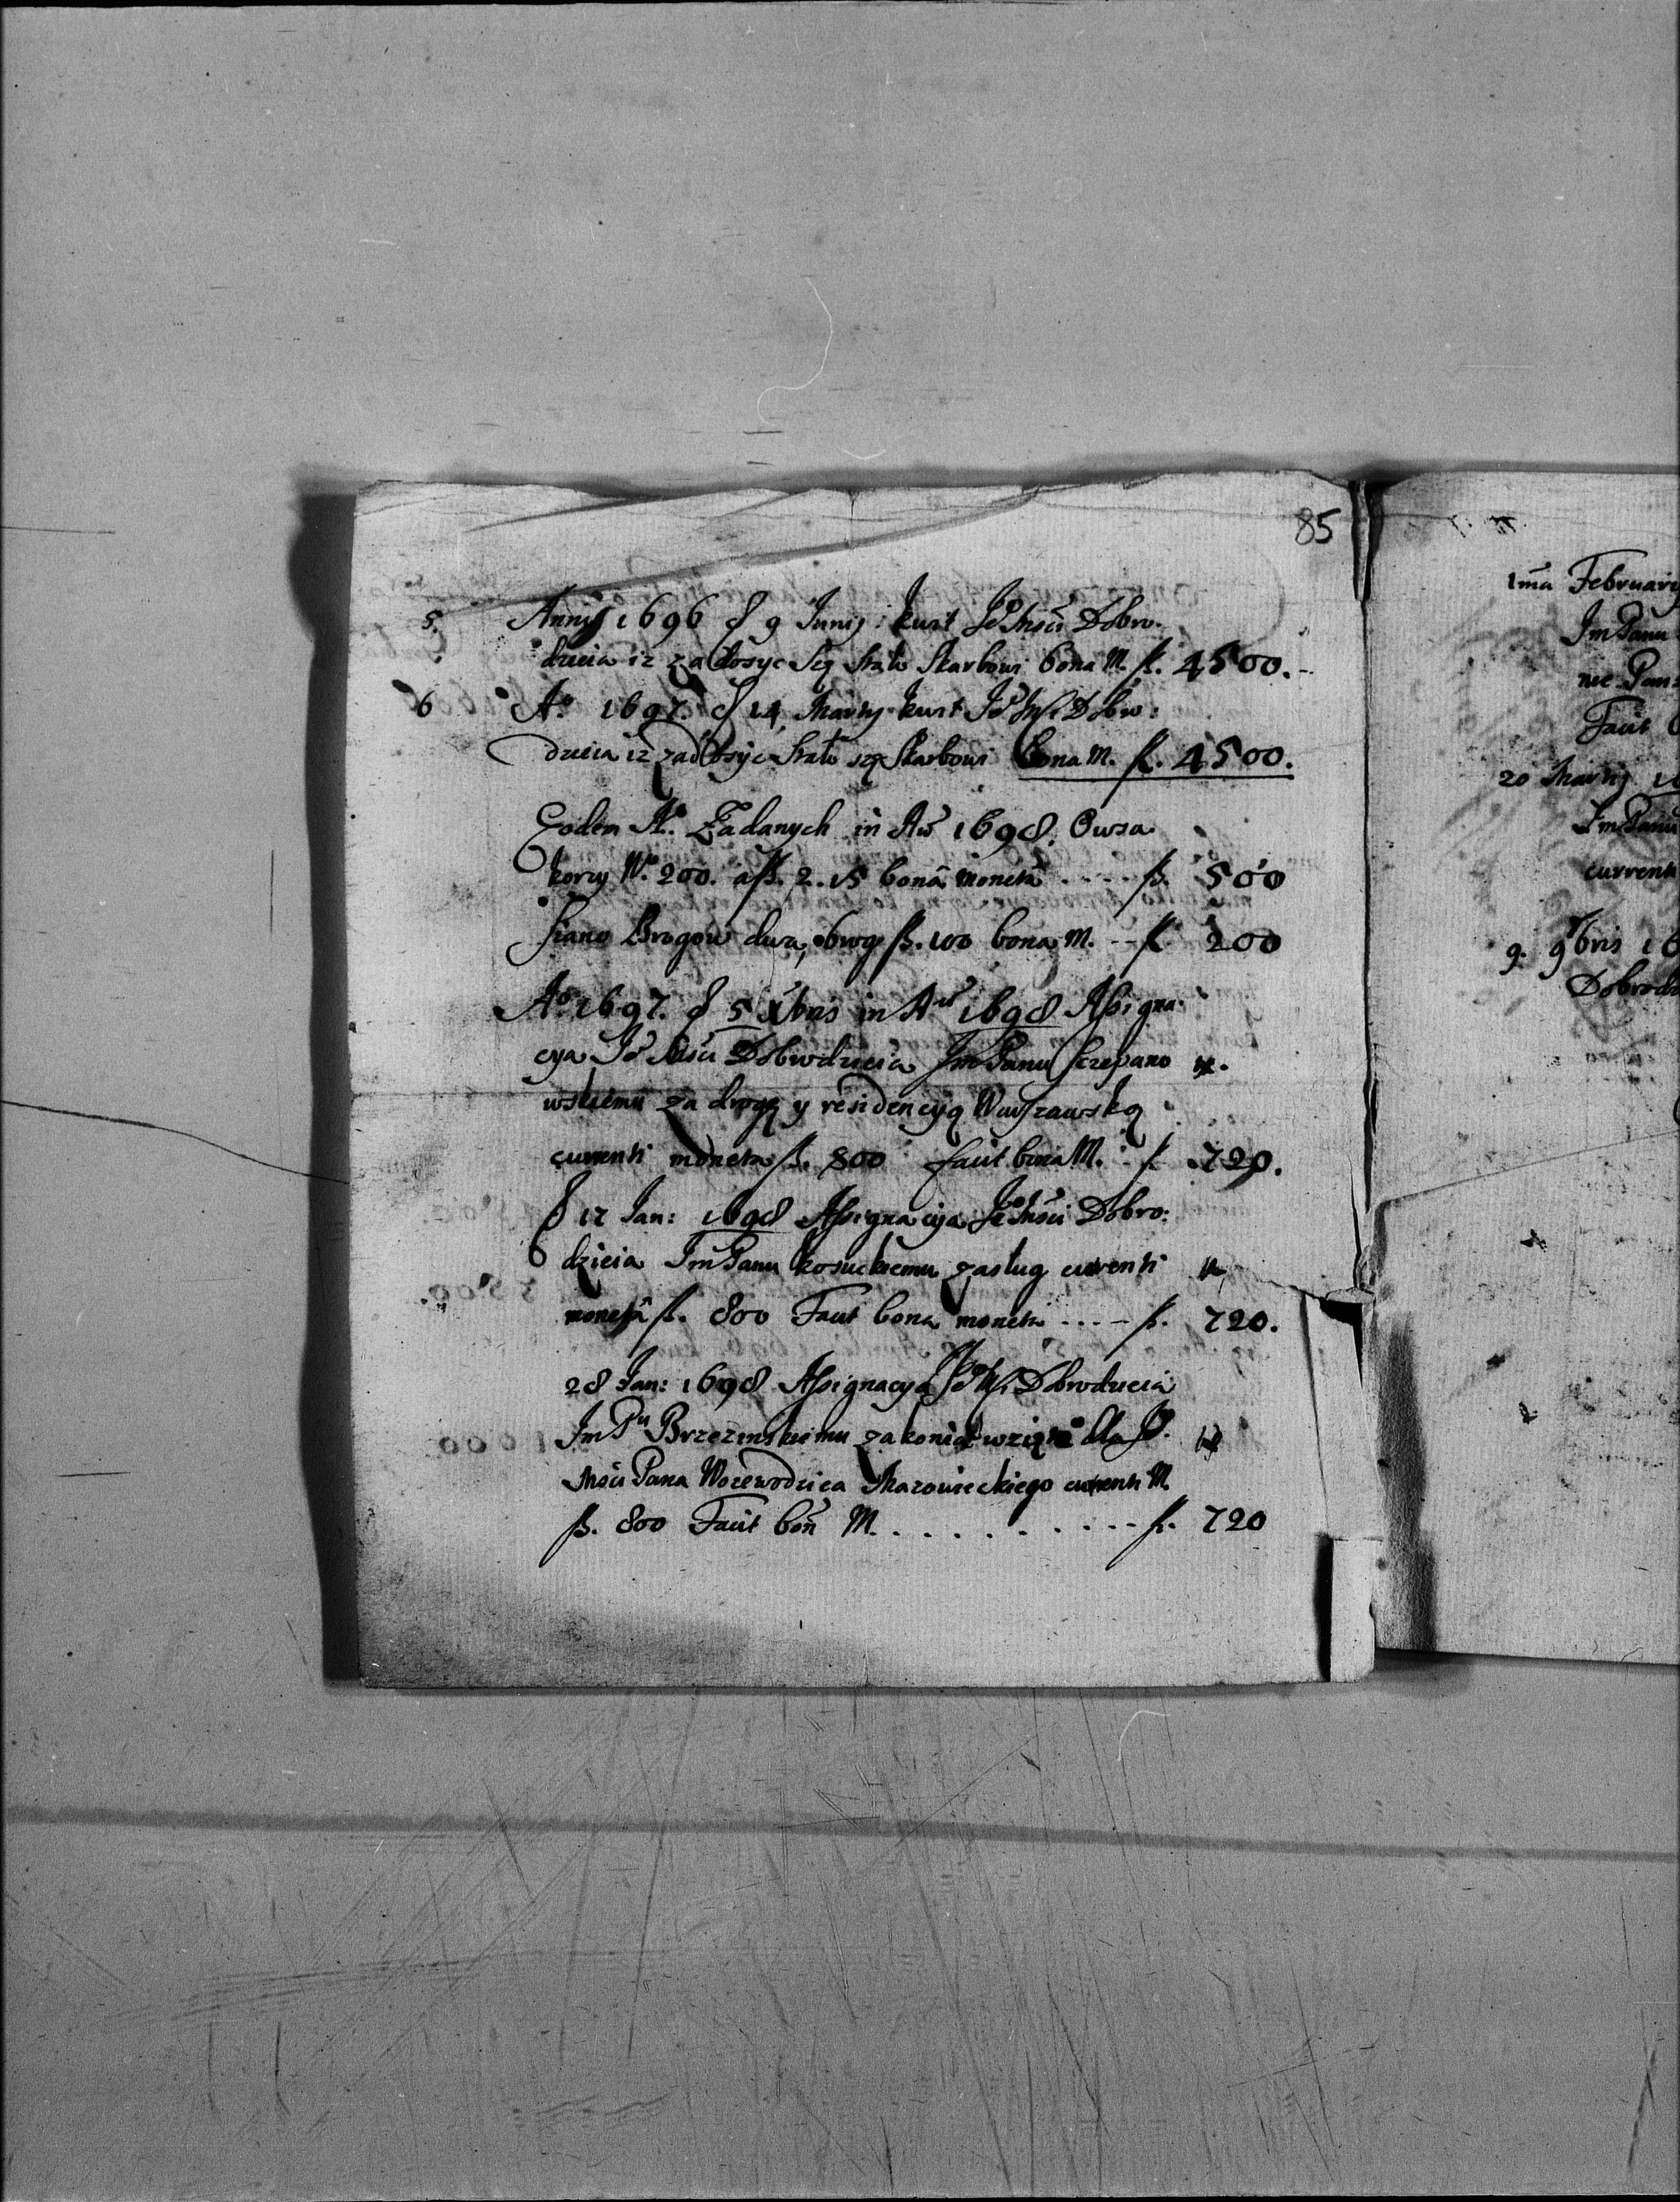 85
5. Anny 1696 d 9 Junij: kwit Jeo Mści Dobro-
dzieia iz za dosyc Się stało Skarbowi bona M. fl. 4500.-
6 Ao 1697. d 14 Martij kwit Jeo Mści Dobro:
dzieia iz zadosyc stało się Skarbowi bona M. fl. 4500.
Eodem Ao. Zadanych in Ao 1698. Owsa
korcy No. 200. a fl. 2.15 bonâ monetâ .... fl. 500
Siano Brogow dwa, obrog fl. 100 bona M. -- fl. 200
Ao 1697. d 5 Xbris in Ao 1698 Assigna-
cya Jeo Mści Dobrodzieia Jm Panu Sczepano
wskiemu za drogę y residencyą Warszawską
currenti moneta fl. 800 facit bona M. fl. 720.
d 12 Jan: 1698 Assignacyja Jeo Mści Dobro:
dzieia Jm Panu Kosuckiemu zasług currenti
monetâ fl. 800 Facit bona moneta .... fl. 720.
28 Jan: 1698 Assignacya Jeo Mści Dobrodzieia
Jm Pu Brzezinskiemu za konia dla Jo.
Mści Pana Woiewodzica Mazowieckiego currenti M.
fl. 800 Facit bon M. .......... fl. 720
1ma February
Jm Panu
nie Pan
Facit
20 Martij
Jm Panu
currenti
9. 9bris 16
Dobrodz